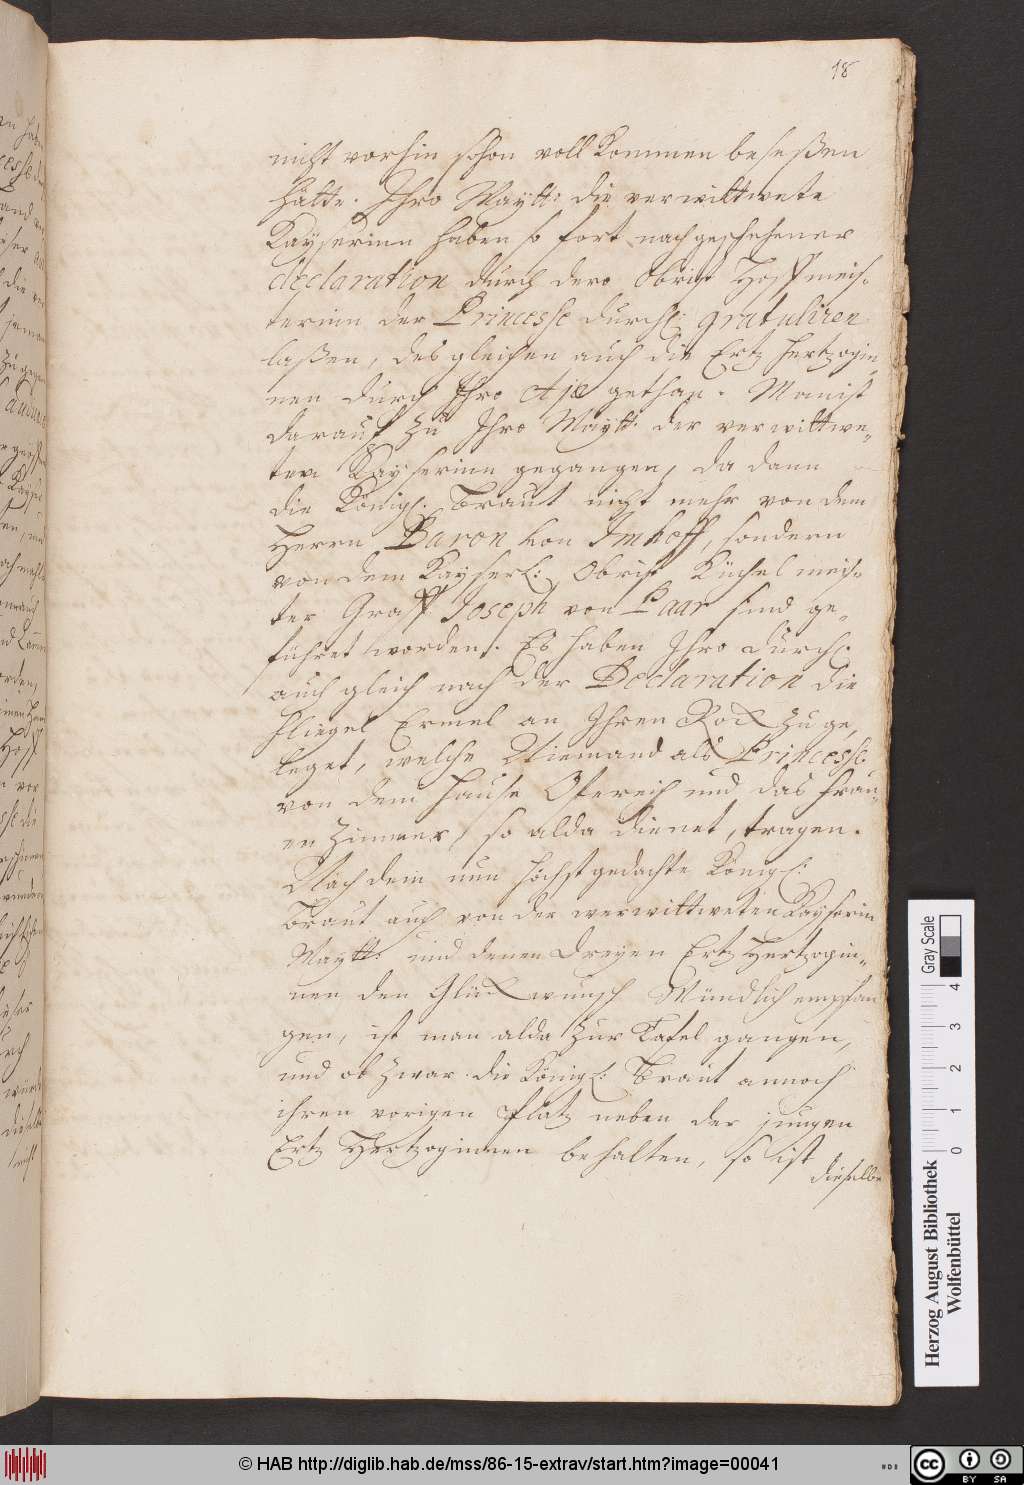 18
nicht vorhin schon vollkommen beseßen
hätte. Ihro Maytt: die verwittwete
Kayserinn haben so fort nach geschehener
declaration durch dero Obrist Hoffmeis-
terinn der Princesse durchl: gratuliren
laßen, desgleichen auch die Ertz Hertzogin-
nen durch Ihro Aje gethan. Man ist
darauf zu Ihro Maytt: der verwittwe-
ten Kayserinn gegangen, da dann
die Königl. Braut nicht mehr von dem
Herrn Baron von Imhoff, sondern
von dem Kayserl: Obrist Küchelmeis-
ter Graff Joseph von Paar sind ge-
führet worden. Es haben Ihro Durchl.
auch gleich nach der Declaration die
Fliegel Ermel an Ihren Rock zu ge-
leget, welche Niemand als Princesse:
von dem Hause Östereich und das Frau-
en Zimmer, so alda dienet, tragen.
Nach dem nun höchstgedachte Königl:
Braut auch von der verwittweten Kayserin
Maytt: und denen dreyen Ertz Hertzogin-
nen den Glückwunsch Mündlich empfan
gen, ist man alda zur Tafel gangen,
und ob zwar die Königl: Braut annoch
ihren vorigen Platz neben der jungen
Ertz Hertzoginnen behalten, so ist
dieselbe
Herzog August Bibliothek
Wolfenbüttel
0 1 2 3 4
Gray Scale
© HAB http://diglib.hab.de/mss/86-15-extrav/start.htm?image=00041
cc BY SA